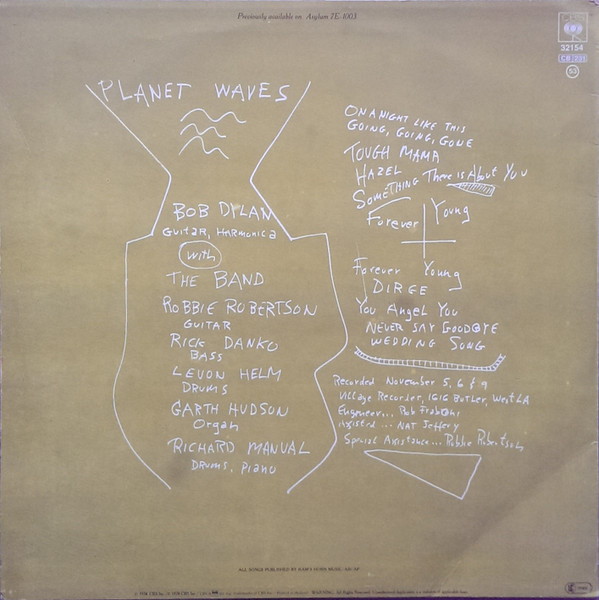 Previously available on Asylum 7E-1003
CBS
32154
CB 271
53
PLANET WAVES
BOB DYLAN
GUITAR, HARMONICA
with
THE BAND
ROBBIE ROBERTSON
GUITAR
RICK DANKO
BASS
LEVON HELM
DRUMS
GARTH HUDSON
Organ
RICHARD MANUAL
DRUMS, PIANO
ON A NIGHT LIKE THIS
GOING, GOING, GONE
TOUGH MAMA
HAZEL
SOMETHING There is About You
Forever Young
Forever Young
DIRGE
You Angel You
NEVER SAY GOODBYE
WEDDING SONG
Recorded November 5, 6 & 9
Village Recorder, 1616 Butler, West LA
Engineer... Rob Fraboni
Assisted... NAT Jeffery
Special Assistance... Robbie Robertson
ALL SONGS PUBLISHED BY RAM'S HORN MUSIC